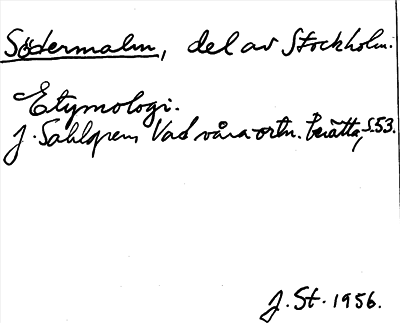 Södermalm, del av Stockholm.
Etymologi.
J. Sahlgren, Vad våra ortn. berätta, s. 53.
J. St. 1956.